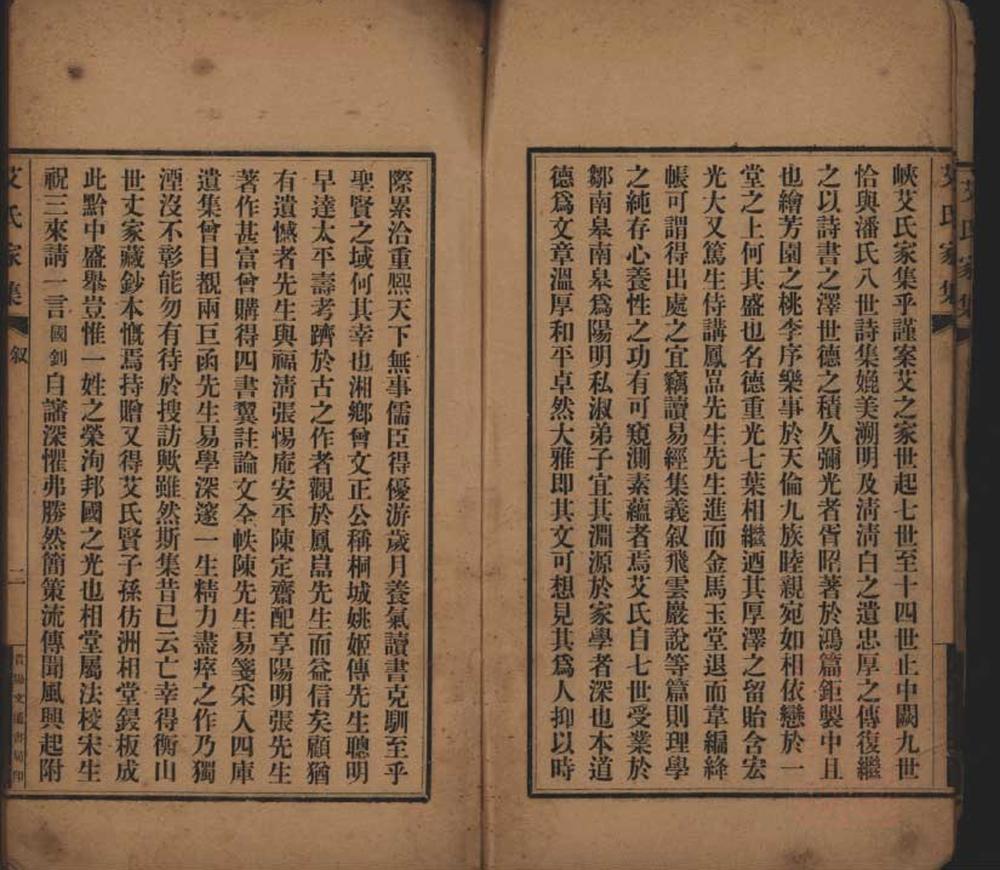 艾氏家集
峽艾氏家集乎謹案艾之家世起七世至十四世止中闕九世
恰與潘氏八世詩集媲美溯明及淸淸白之遺忠厚之傳復繼
之以詩書之澤世德之積久彌光者胥昭著於鴻篇鉅製中且
也繪芳園之桃李序樂事於天倫九族睦親宛如相依戀於一
堂之上何其盛也名德重光七葉相繼迺其厚澤之留貽含宏
光大又篤生侍講鳳嵓先生先生進而金馬玉堂退而韋編絳
帳可謂得出處之宜竊讀易經集義叙飛雲巖說等篇則理學
之純存心養性之功有可窺測素蘊者焉艾氏自七世受業於
鄒南皋南皋爲陽明私淑弟子宜其淵源於家學者深也本道
德爲文章溫厚和平卓然大雅即其文可想見其爲人抑以時
際累洽重熙天下無事儒臣得優游歲月養氣讀書克馴至乎
聖賢之域何其幸也湘鄉曾文正公稱桐城姚姬傳先生聰明
早達太平壽考躋於古之作者觀於鳳嵓先生而益信矣顧猶
有遺憾者先生與福淸張惕庵安平陳定齋配享陽明張先生
著作甚富曾購得四書翼註論文全帙陳先生易箋采入四庫
遺集曾目覩兩巨函先生易學深邃一生精力盡瘁之作乃獨
湮沒不彰能勿有待於搜訪歟雖然斯集昔已云亡幸得衡山
世丈家藏鈔本慨焉持贈又得艾氏賢子孫仿洲相堂鋟板成
此黔中盛舉豈惟一姓之榮洵邦國之光也相堂屬法校宋生
祝三來請一言國釗自譾深懼弗勝然簡策流傳聞風興起附
艾氏家集
叙
二
貴陽文通書局印